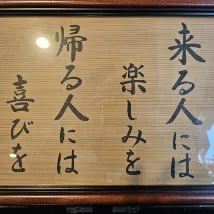 来る人には
楽しみを
帰る人には
喜びを